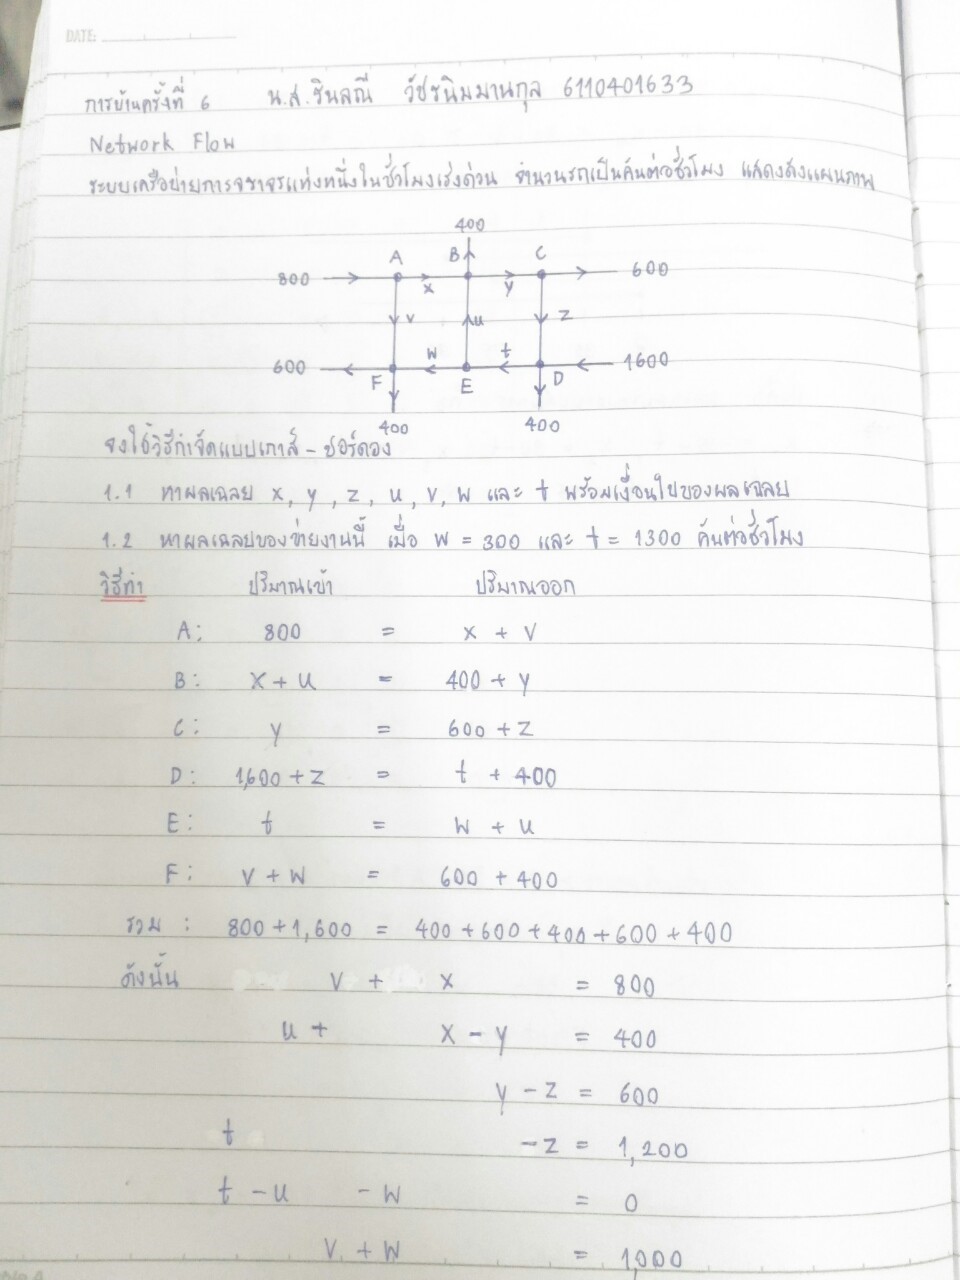 DATE:
การบ้านครั้งที่ 6 น.ส.ชินลณี วัชชนิมมานกุล 6110401633
Network Flow
ระบบเครือข่ายการจราจรแห่งหนึ่งในชั่วโมงเร่งด่วน จำนวนรถเป็นคันต่อชั่วโมง แสดงดังแผนภาพ
400
A B C
800 x y 600
v u z
600 w t 1600
F E D
400 400
จงใช้วิธีกำจัดแบบเกาส์ - ชอร์ดอง
1.1 หาผลเฉลย x, y, z, u, v, w และ t พร้อมเงื่อนไขของผลเฉลย
1.2 หาผลเฉลยของข่ายงานนี้ เมื่อ w = 300 และ t = 1300 คันต่อชั่วโมง
วิธีทำ ปริมาณเข้า ปริมาณออก
A: 800 = x + v
B: x + u = 400 + y
C: y = 600 + z
D: 1,600 + z = t + 400
E: t = w + u
F: v + w = 600 + 400
รวม : 800 + 1,600 = 400 + 600 + 400 + 600 + 400
ดังนั้น v + x = 800
u + x - y = 400
y - z = 600
t - z = 1,200
t - u - w = 0
v + w = 1,000